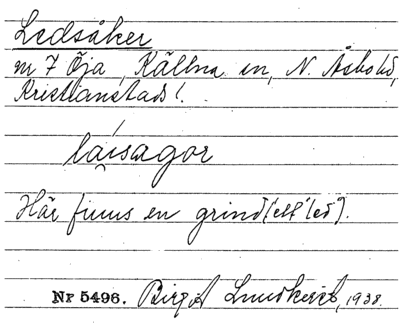 Ledsåker
nr 7 Öja, Källna sn, N. Åsbo hd,
Kristianstads l.
Här finns en grind [ett "led"].
Nr 5496. Birgit Lundkvist, 1938.